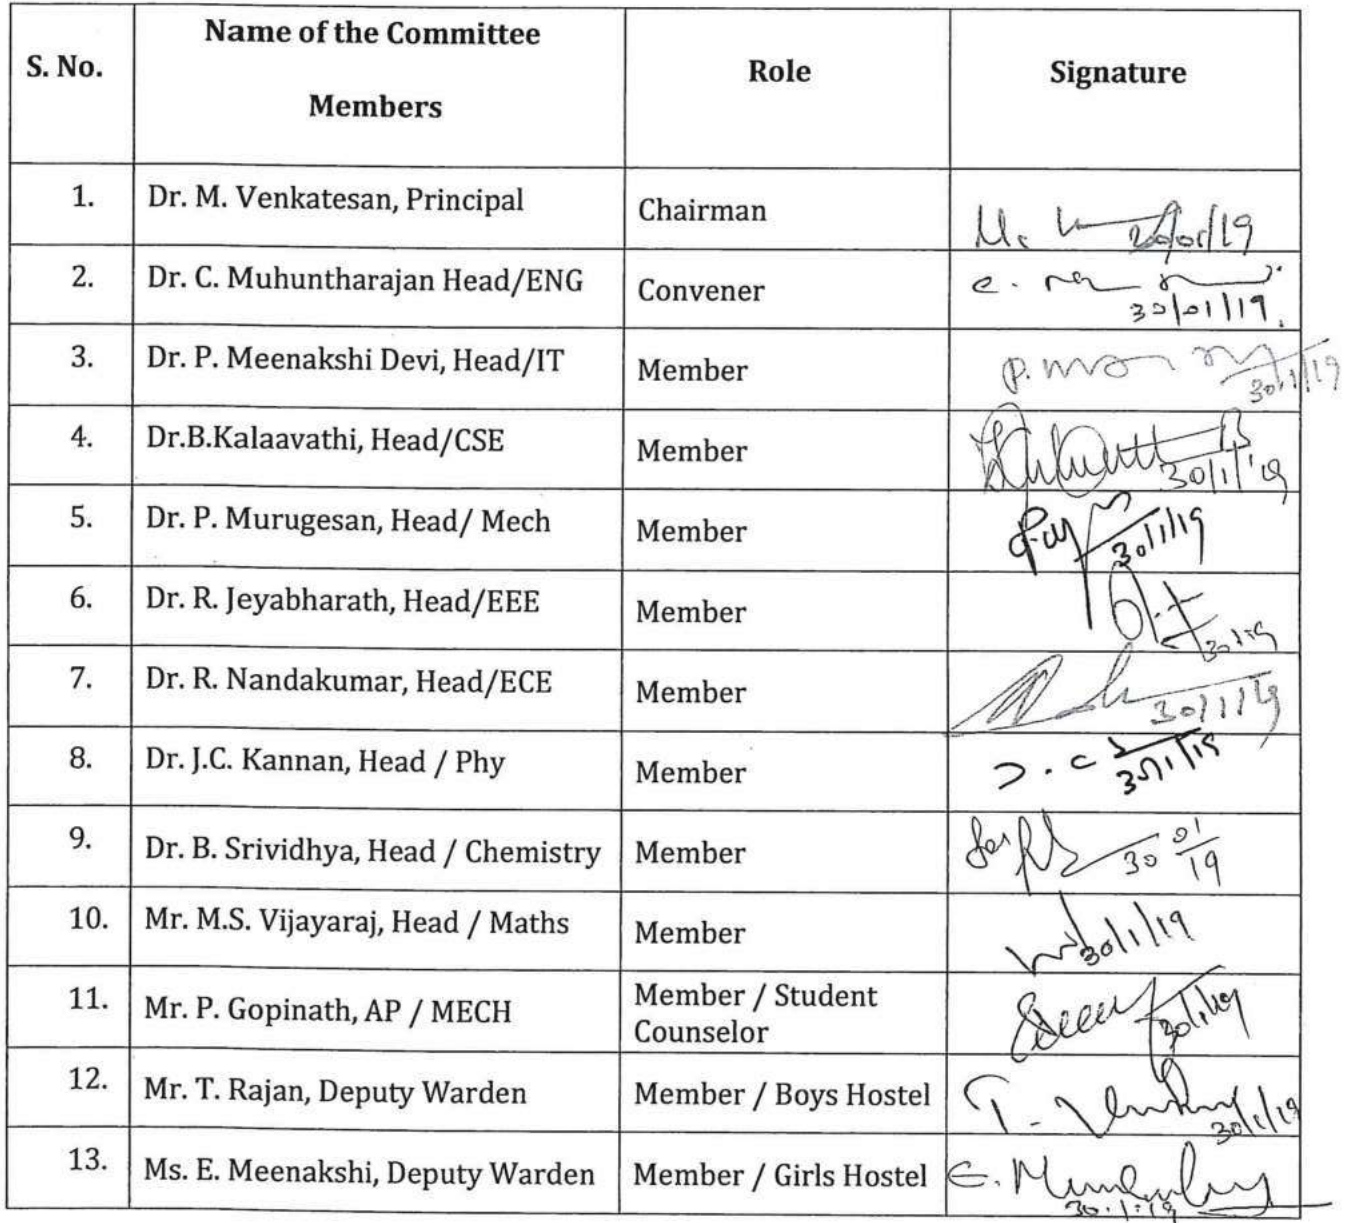 S. No. Name of the Committee Members Role Signature
1. Dr. M. Venkatesan, Principal Chairman
2. Dr. C. Muhuntharajan Head/ENG Convener 30/01/19.
3. Dr. P. Meenakshi Devi, Head/IT Member 30/1/19
4. Dr.B.Kalaavathi, Head/CSE Member 30/1/19
5. Dr. P. Murugesan, Head/ Mech Member 30/1/19
6. Dr. R. Jeyabharath, Head/EEE Member
7. Dr. R. Nandakumar, Head/ECE Member 30/1/19
8. Dr. J.C. Kannan, Head / Phy Member
9. Dr. B. Srividhya, Head / Chemistry Member 30 01/19
10. Mr. M.S. Vijayaraj, Head / Maths Member 30/1/19
11. Mr. P. Gopinath, AP / MECH Member / Student Counselor 30/1/19
12. Mr. T. Rajan, Deputy Warden Member / Boys Hostel 30/1/19
13. Ms. E. Meenakshi, Deputy Warden Member / Girls Hostel 30.1.19